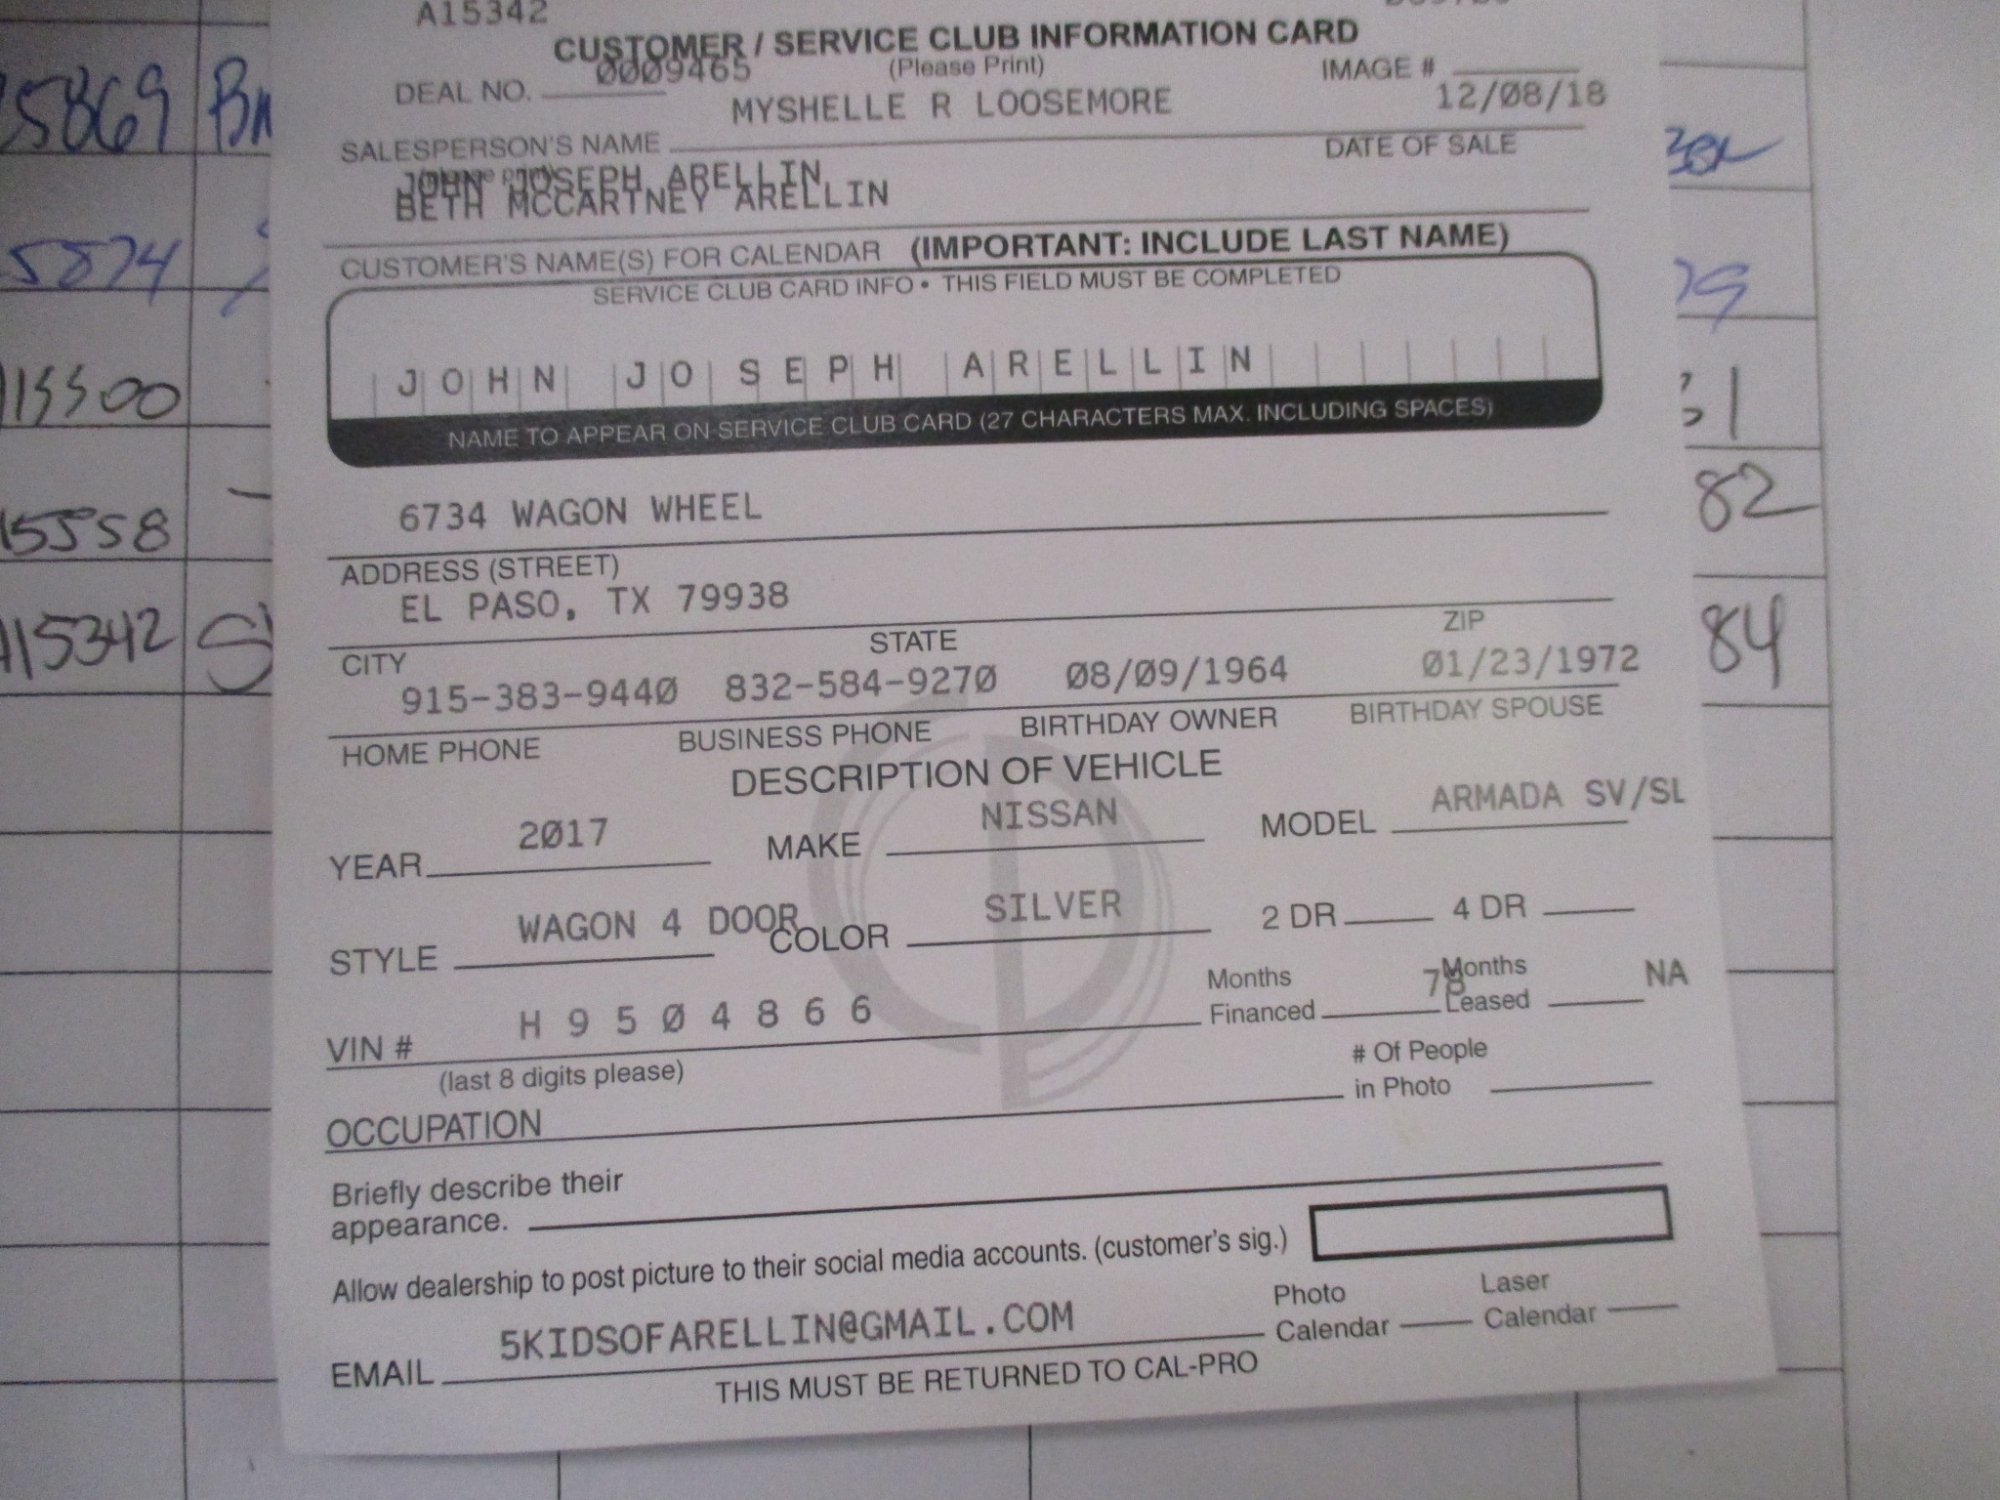 A15342
CUSTOMER / SERVICE CLUB INFORMATION CARD
(Please Print)
DEAL NO. 0009465
IMAGE #
MYSHELLE R LOOSEMORE 12/08/18
SALESPERSON'S NAME DATE OF SALE
JOHN JOSEPH ARELLIN
BETH MCCARTNEY ARELLIN
CUSTOMER'S NAME(S) FOR CALENDAR (IMPORTANT: INCLUDE LAST NAME)
SERVICE CLUB CARD INFO • THIS FIELD MUST BE COMPLETED
JOHN JOSEPH ARELLIN
NAME TO APPEAR ON SERVICE CLUB CARD (27 CHARACTERS MAX. INCLUDING SPACES)
6734 WAGON WHEEL
ADDRESS (STREET)
EL PASO, TX 79938
CITY STATE ZIP
915-383-9440 832-584-9270 08/09/1964 01/23/1972
HOME PHONE BUSINESS PHONE BIRTHDAY OWNER BIRTHDAY SPOUSE
DESCRIPTION OF VEHICLE
YEAR 2017 MAKE NISSAN MODEL ARMADA SV/SL
STYLE WAGON 4 DOOR COLOR SILVER 2 DR 4 DR
VIN # H9504866 Months Financed 78 Months Leased NA
(last 8 digits please)
# Of People in Photo
OCCUPATION
Briefly describe their
appearance.
Allow dealership to post picture to their social media accounts. (customer's sig.)
Photo Calendar Laser Calendar
EMAIL 5KIDSOFARELLIN@GMAIL.COM
THIS MUST BE RETURNED TO CAL-PRO
5869
5874
15500
15558 82
15342 84